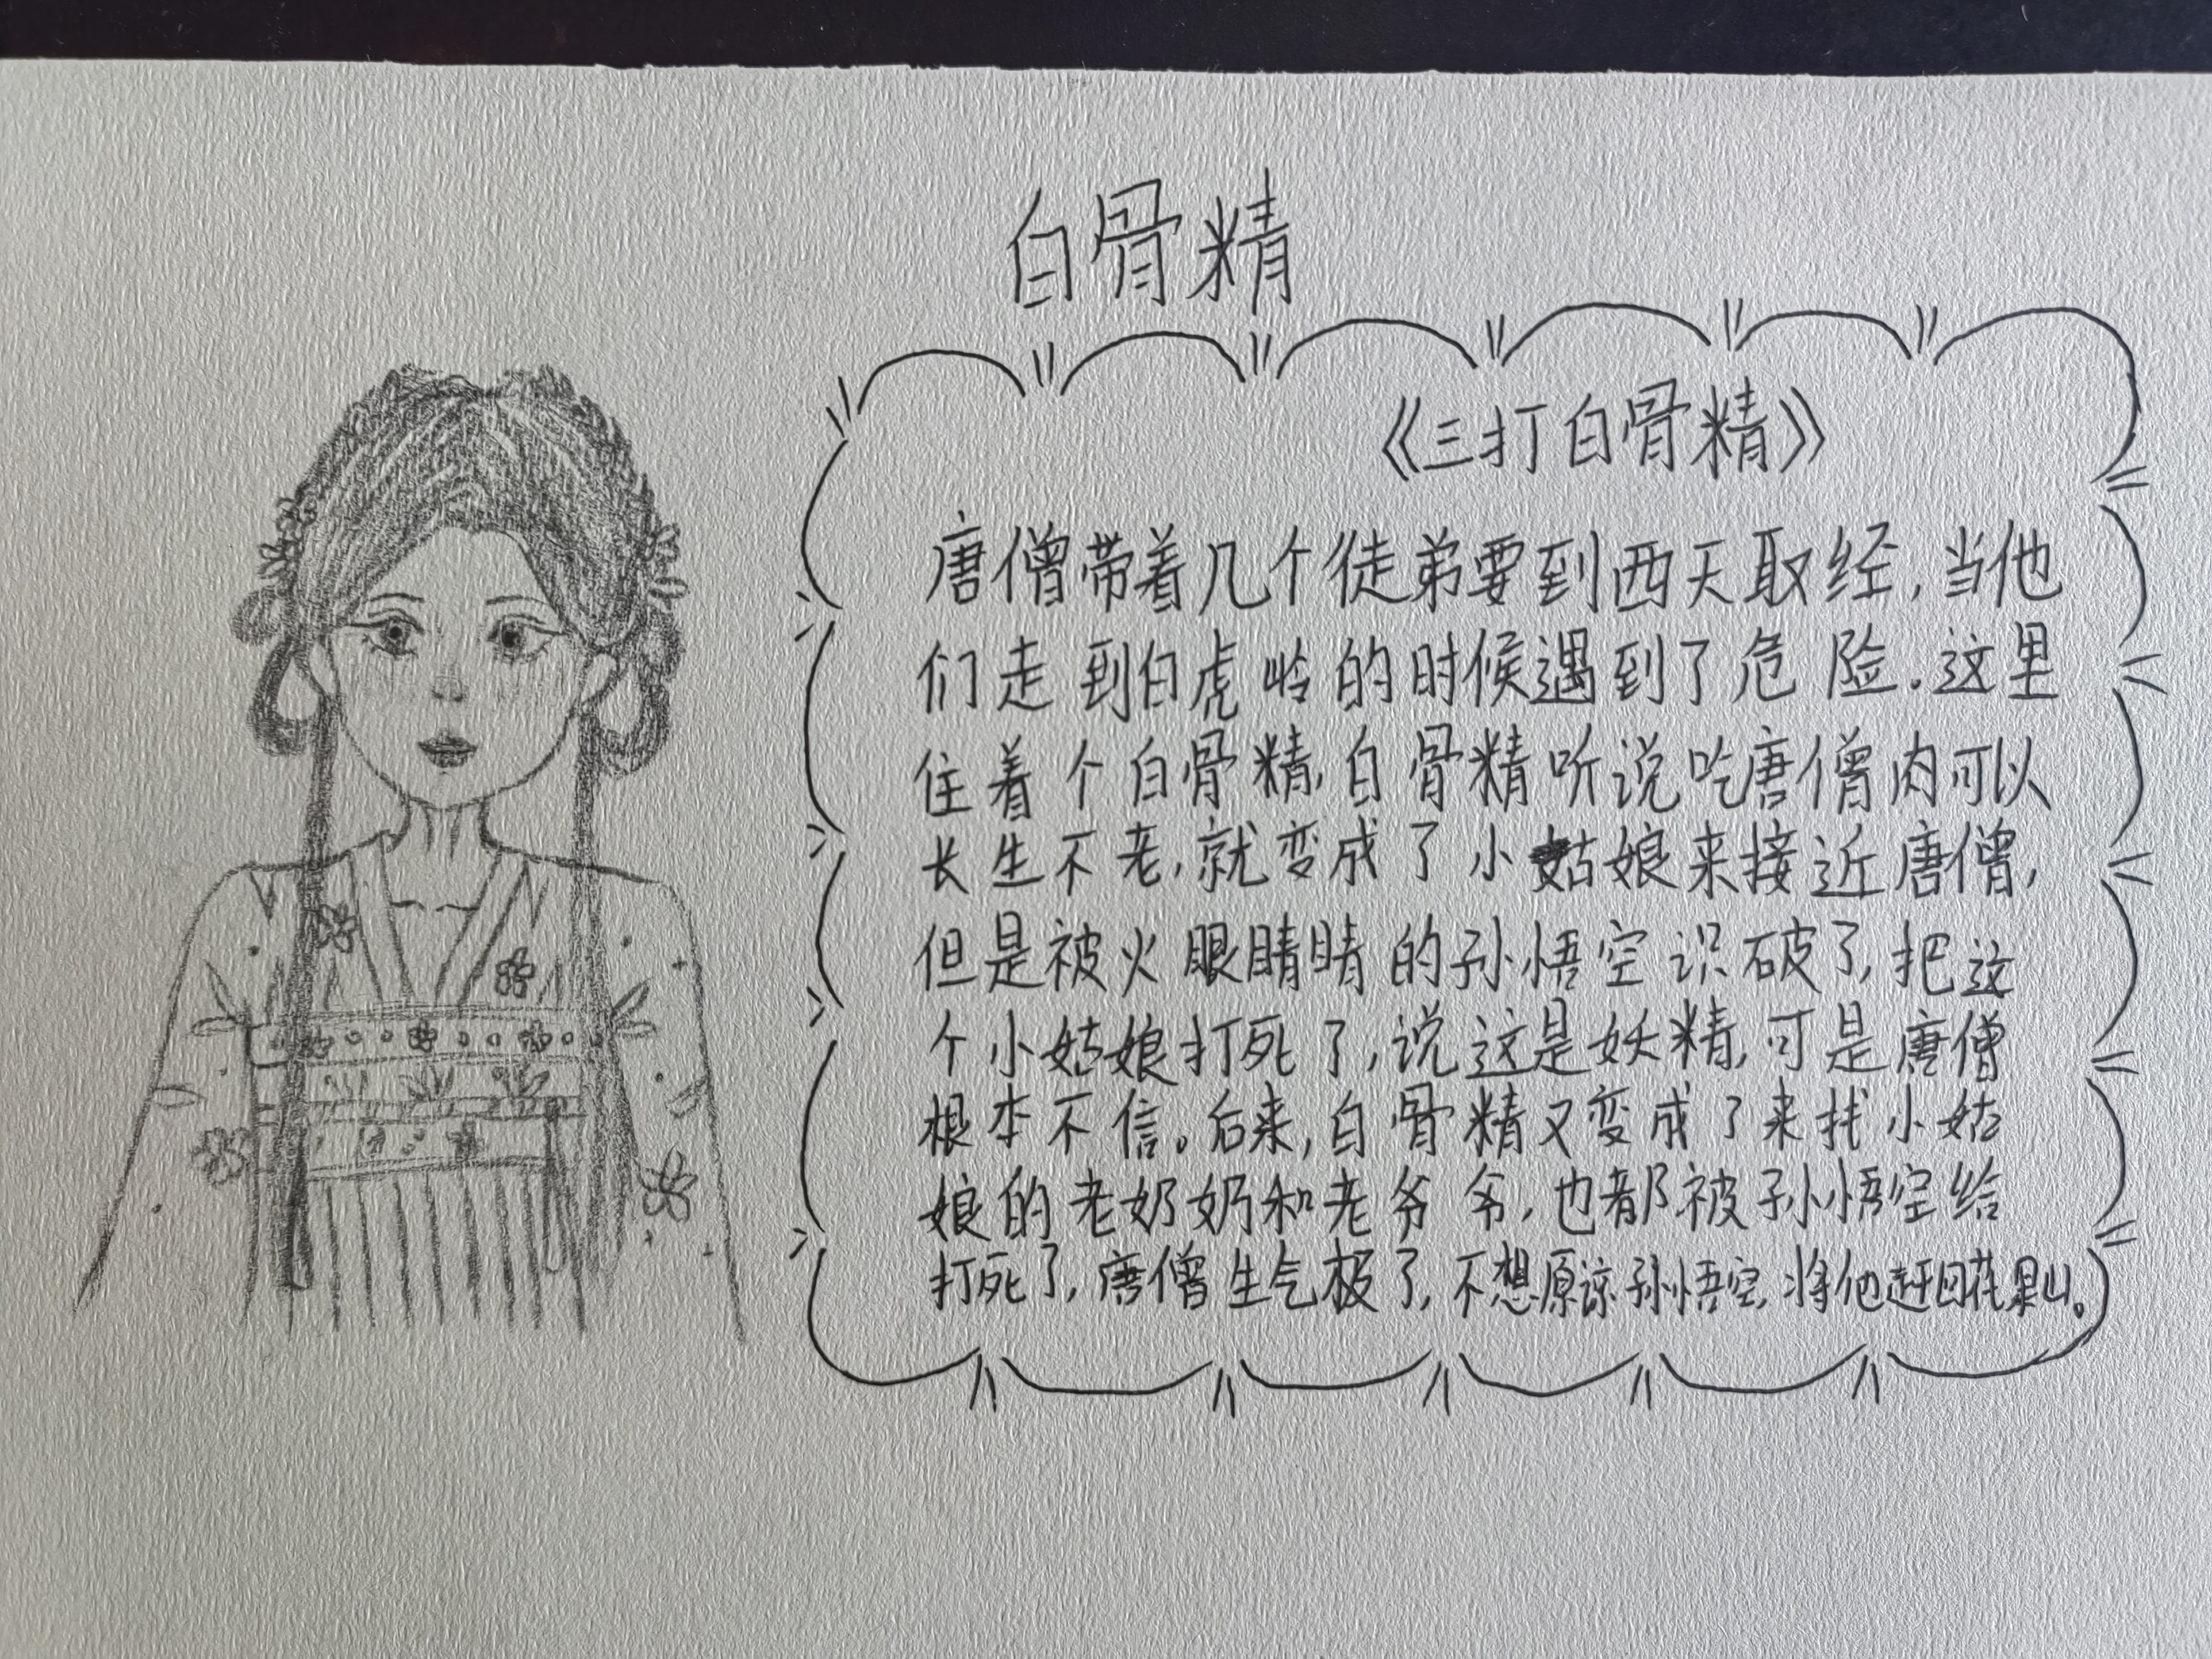 白骨精
《三打白骨精》
唐僧带着几个徒弟要到西天取经,当他
们走到白虎岭的时候遇到了危险.这里
住着个白骨精,白骨精听说吃唐僧肉可以
长生不老,就变成了小姑娘来接近唐僧,
但是被火眼睛睛的孙悟空识破了,把这
个小姑娘打死了,说这是妖精,可是唐僧
根本不信。后来,白骨精又变成了来找小姑
娘的老奶奶和老爷爷,也都被孙悟空给
打死了,唐僧生气极了,不想原谅孙悟空,将他赶回花果山。